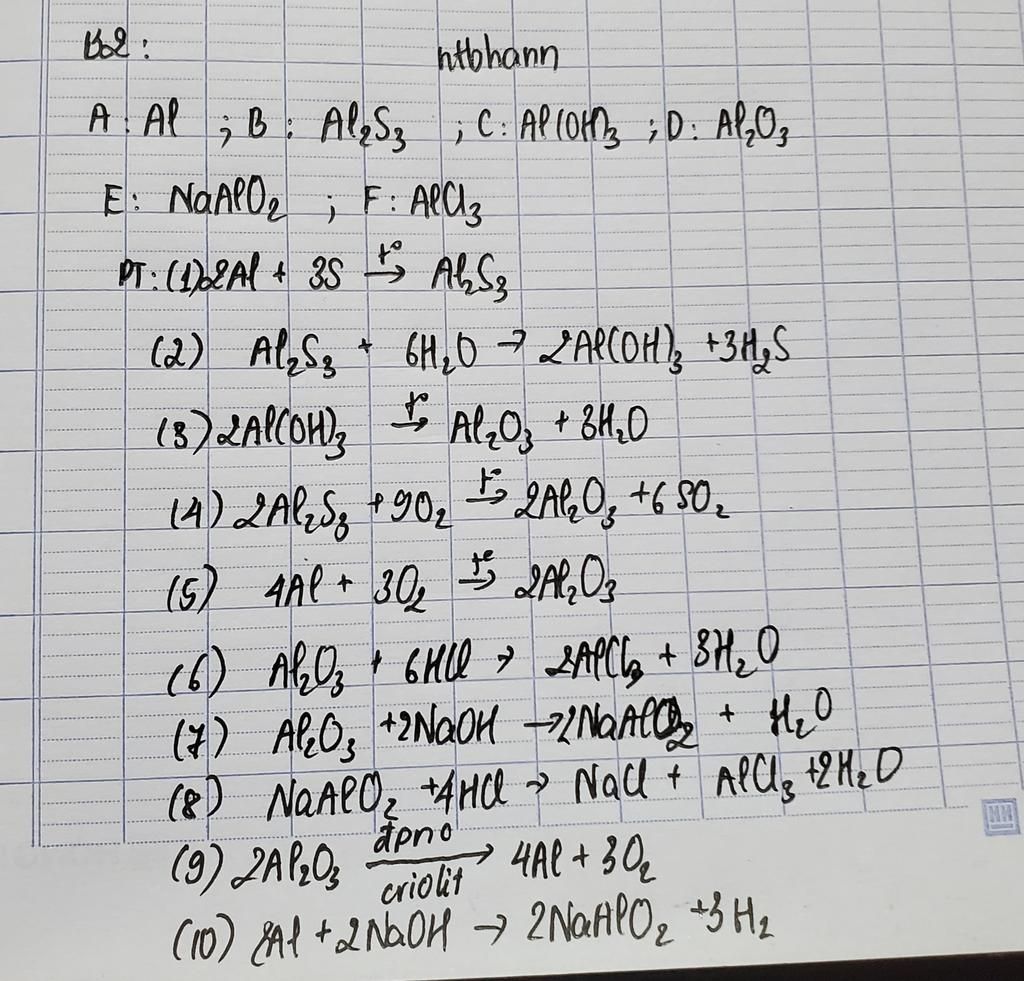 Bài 2: htbhann
A: Al ; B: Al₂S₃ ; C: Al(OH)₃ ; D: Al₂O₃
E: NaAlO₂ ; F: AlCl₃
PT: (1) 2Al + 3S t°→ Al₂S₃
(2) Al₂S₃ + 6H₂O → 2Al(OH)₃ + 3H₂S
(3) 2Al(OH)₃ t°→ Al₂O₃ + 3H₂O
(4) 2Al₂S₃ + 9O₂ t°→ 2Al₂O₃ + 6SO₂
(5) 4Al + 3O₂ t°→ 2Al₂O₃
(6) Al₂O₃ + 6HCl → 2AlCl₃ + 3H₂O
(7) Al₂O₃ + 2NaOH → 2NaAlO₂ + H₂O
(8) NaAlO₂ + 4HCl → NaCl + AlCl₃ + 2H₂O
(9) 2Al₂O₃ đpnc→ criolit 4Al + 3O₂
(10) 2Al + 2NaOH → 2NaAlO₂ + 3H₂